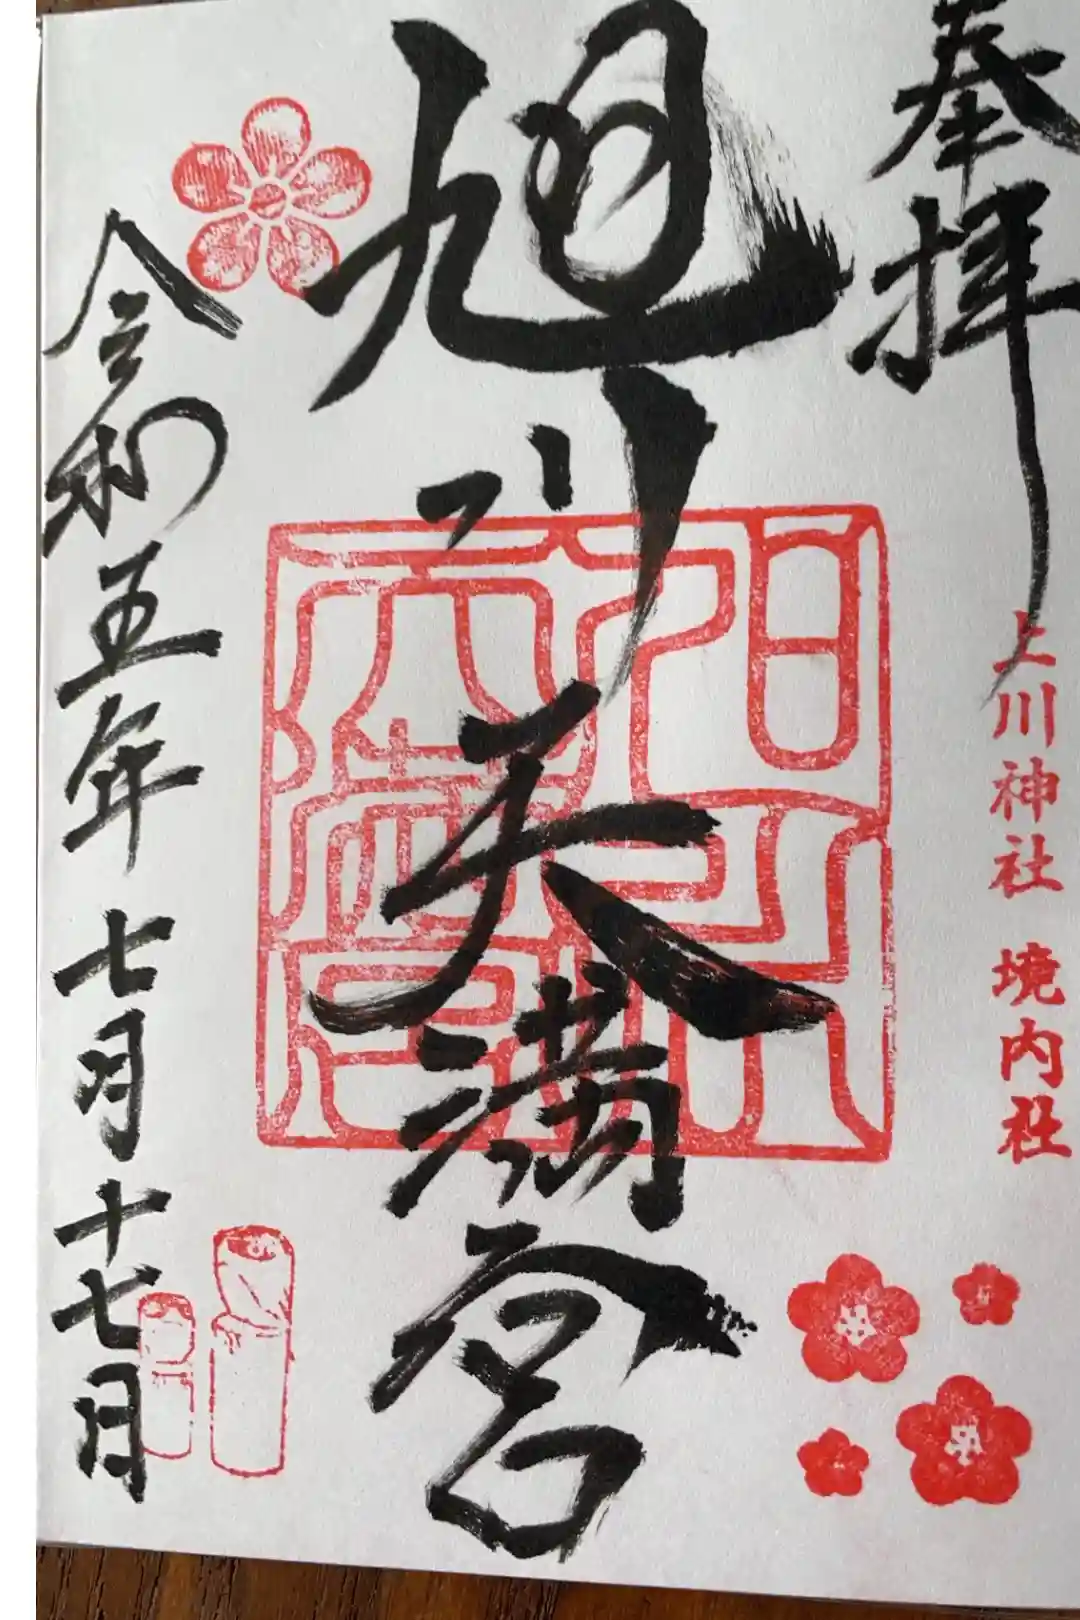 奉拝
上川神社 境内社
旭川天満宮
令和五年 七月十七日